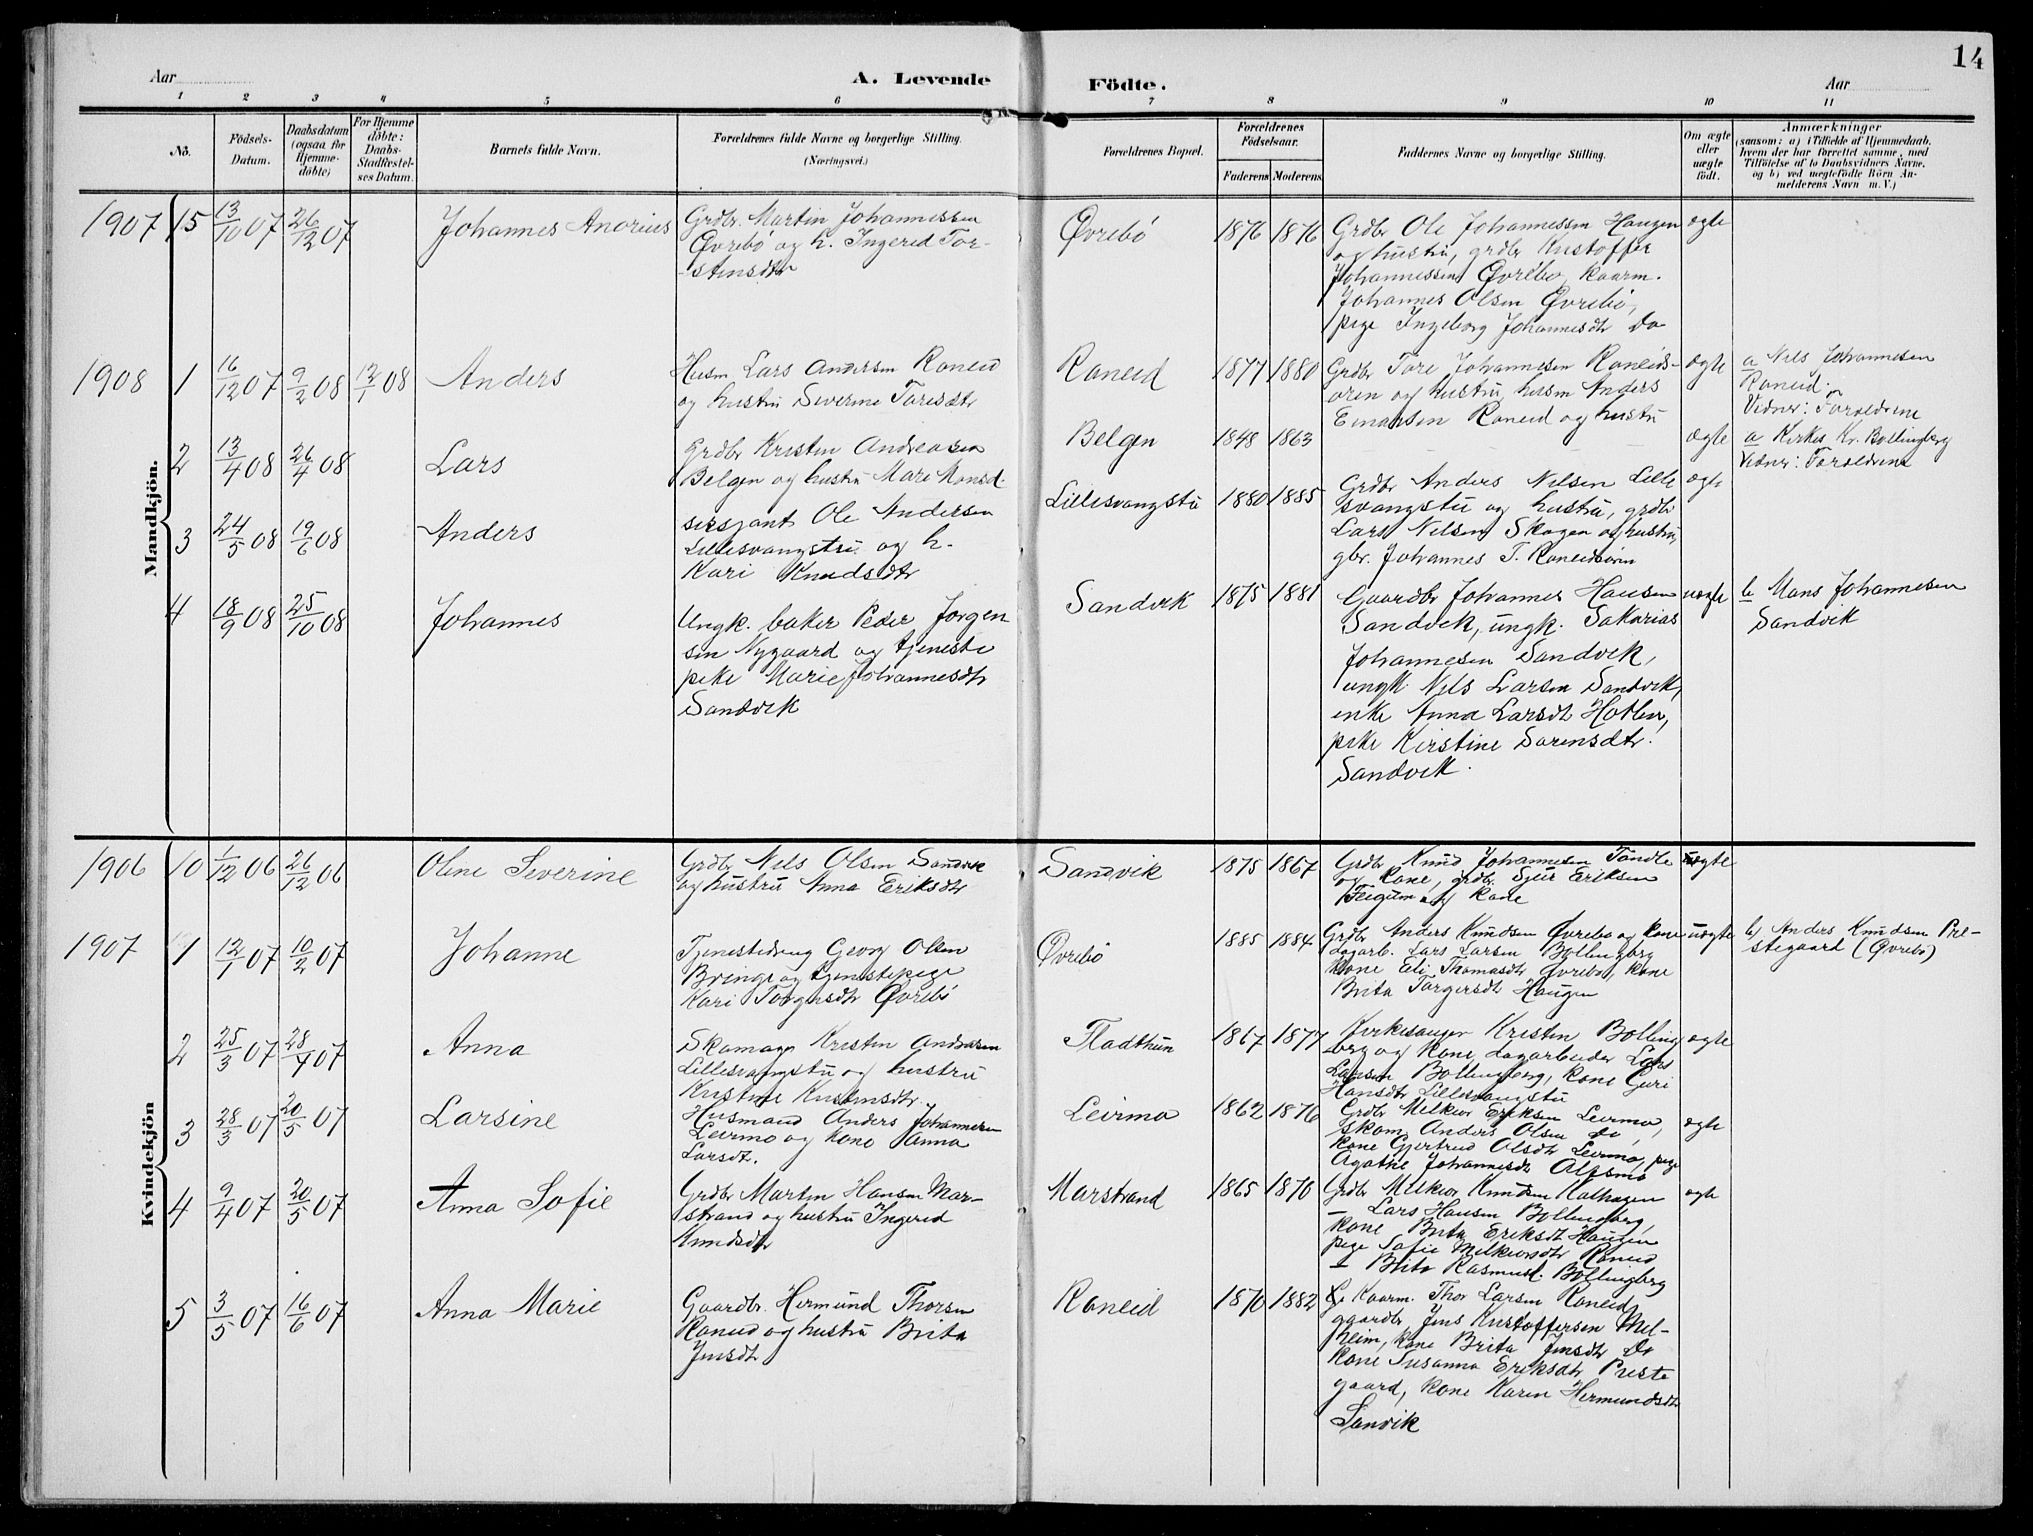 14
Aar
A. Levende
Födte.
Aar
1 2 3 4 5 6 7 8 9 10 11
No.
Födsels-
Datum.
Daabsdatum
(ogsaa for
Hjemme-
döbte)
For Hjemme
döbte:
Daabs-
Stadfæstel-
ses Datum.
Barnets fulde Navn.
Forældrenes fulde Navne og borgerlige Stilling.
(Næringsvei.)
Forældrenes Bopæl.
Forældrenes
Födselsaar.
Faderens Moderens
Faddernes Navne og borgerlige Stilling.
Om ægte
eller
uægte
födt.
Anmærkninger
(saasom: a) i Tilfælde af Hjemmedaab,
hvem der har forrettet samme, med
Tilföielse af to Daabsvidners Navne,
og b) ved uægtefödte Börn An-
melderens Navn m. V.)
Mandkjön.
1907 15 13/10 07 26/12 07
Johannes Andreas
Grdbr Martin Johannessen
Øvrebö og h. Ingered Tor-
-stensdtr
Øvrebö
1876 1876
Grdbr Ole Johannessen Haugen
og hustru, grdbr Kristoffer
Johannessen Øvrebo, kaarm.
Johannes Olsen Øvrebö,
pige Ingeborg Johannesdtr Do
ægte
1908 1 16/12 07 9/2 08 12/1 08
Anders
Husm Lars Andersen Roneid
og hustru Severine Toresdtr
Roneid
1877 1880
Grdbr Tore Johannesen Roneids-
ören og hustru, husm Anders
Einarsen Roneid og hustru
ægte
a Nels Johannesen
Roneid.
Vidner: Forældrene
2 13/4 08 26/4 08
Lars
Grdbr Kristen Andreasen
Belgen og hustru Mari Monsd.
Belgen
1848 1863
ægte
a Kirkes Kr. Bollingberg
Vidner: Forældrene
3 24/5 08 19/6 08
Anders
sersjant Ole Andersen
Lillesvangstu og h.
Kari Knudsdtr
Lillesvangstu
1880 1885
Grdbr Anders Nilsen Lille
svangstu og hustru, grdbr
Lars Nilsen Skogen og hustru,
gbr. Johannes T. Roneidsören
ægte
4 18/9 08 25/10 08
Johannes
Ungk. baker Peder Jorgen
sen Nygaard og tjeneste
pike Marie Johannesdtr
Sandvik
Sandvik
1875 1881
Gaardbr Johannes Hansen
Sandvik, ungk. Sakarias
Johannesen Sandvik,
ungk. Nils Larsen Sandvik,
enke Anna Larsdt Hollen,
pike Kirstine Sorensdtr.
Sandvik.
uægte
b Mons Johannesen
Sandvik
Kvindekjön
1906 10 1/12 06 26/12 06
Oline Severine
Grdbr Nels Olsen Sandvik
og hustru Anna Eriksdtr
Sandvik
1875 1867
Grdbr Knud Johannesen Tandle
og kone, grdbr Sjur Eriksen
Feigum og kone
ægte
1907 1 12/1 07 10/2 07
Johanne
Tjenestedreng Georg Olsen
Bringe og tjenestepige
Kari Torgersdtr Øvrebö
Øvrebö
1885 1884
Grdbr Anders Knudsen Øvrebo og kone
dagarb. Lars Larsen Bollingberg
kone Eli Thomasdtr Øvrebo, kone
Brita Torgersdtr Haugen
uægte
b) Anders Knudsen Pre-
stegaard (Øvrebö)
2 25/3 07 28/4 07
Anna
Skomager Kristen Andersen
Lillesvangstu og hustru
Kristine Kristensdtr.
Fladthun
1867 1877
Kirkesanger Kristen Bolling
berg og kone, dagarbeider Lars
Larsen Bollingberg, kone Guri
Hansdtr Lillesvangstu
ægte
3 28/3 07 20/5 07
Larsine
Husmand Anders Johannesen
Leirmo og kone Anna
Larsdt.
Leirmo
1862 1876
Grdbr Melkior Eriksen Leirmo,
skom. Anders Olsen Do,
kone Gjertrud Olsdtr Leirmo, pige
Agathe Johannesdt Alsmo
ægte
4 9/4 07 20/5 07
Anna Sofie
Grdbr Martin Hansen Mar-
strand og hustru Ingerid
Knudsdtr
Marstrand
1865 1870
Grdbr Melkior Knudsen Kalhagen
- Lars Hansen Bollingberg,
kone Brita Eriksdt Haugen
pige Sofie Melkiorsdtr Roneid
- Brita Rasmusd. Bollingberg
ægte
5 3/5 07 16/6 07
Anna Marie
Gaardbr. Hermund Thorsen
Roneid og hustru Brita
Jensdtr
Roneid
1870 1882
Kaarm. Thor Larsen Roneid
gaardbr Jens Kristoffersen Mel-
heim, kone Brita Jensdtr Do
kone Susanna Eriksdtr Preste
gaard, kone Karen Hermundsdtr
Sanvik